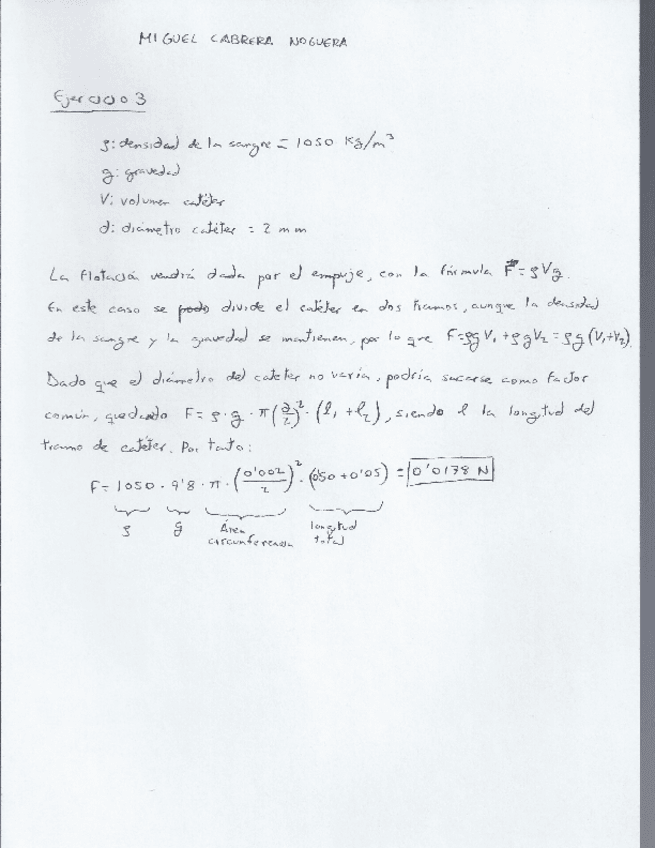 MIGUEL CABRERA NOGUERA
Ejercicio 3
ρ: densidad de la sangre = 1050 Kg/m³
g: gravedad
V: volumen catéter
d: diámetro catéter = 2 mm
La flotación vendrá dada por el empuje, con la fórmula F = ρVg.
En este caso se divide el catéter en dos tramos, aunque la densidad
de la sangre y la gravedad se mantienen, por lo que F=ρgV₁+ρgV₂=ρg(V₁+V₂).
Dado que el diámetro del cateter no varía, podría sacarse como factor
común, quedando F= ρ·g·π(∂/2)²·(l₁+l₂), siendo l la longitud del
tramo de catéter. Por tanto:
F=1050·9'8·π·(0'002/2)²·(0'50+0'05) = 0'0178 N
ρ g Área circunferencia longitud total